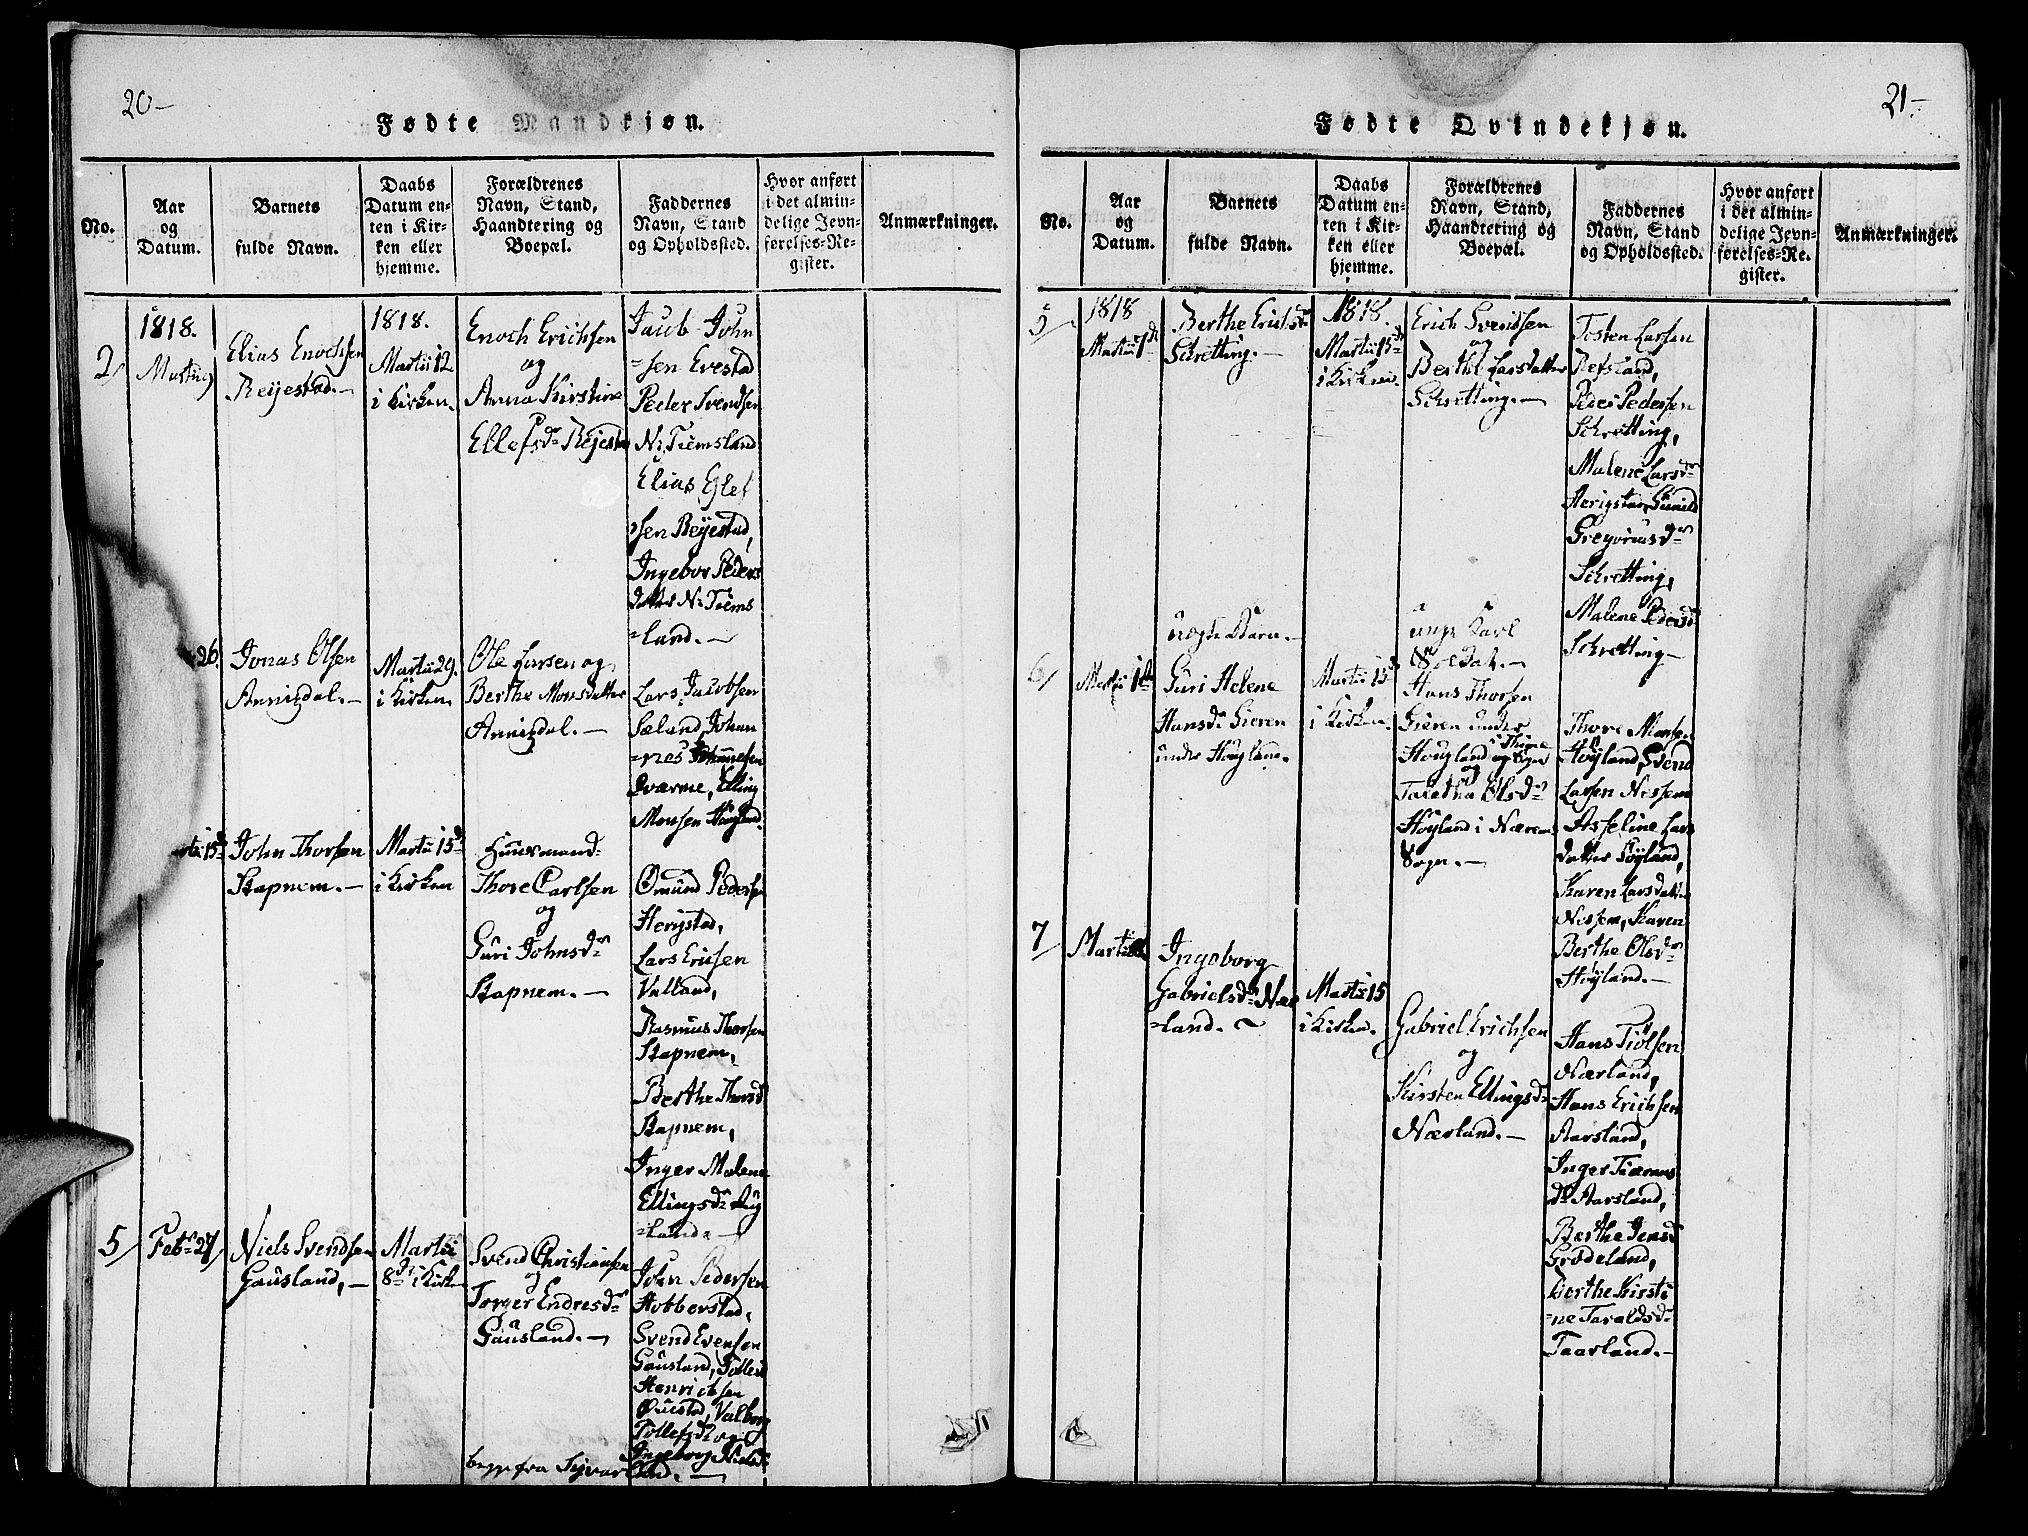 20-
Fødte Mandkjøn.
No.
Aar
og
Datum.
Barnets
fulde Navn.
Daabs
Datum en-
ten i Kir-
ken eller
hjemme.
Forældrenes
Navn, Stand,
Haandtering og
Boepæl.
Faddernes
Navn, Stand
og Opholdssted.
Hvor anført
i det almin-
delige Jevn-
førelses-Re-
gister.
Anmærkninger.
2/
1818.
Martii
Elias Enochsen
Reijestad.-
1818.
Martii 12
i Kirken.
Enoch Erichsen
og
Anna Kirstine
Ellefsdr Reijestad
Jacob John
=sen Evestad
Peder Svendsen
N: Tiemsland
Elias Eglef
=sen Reijestad,
Ingebor Peders
datter N: Tiems
=land.-
26.
Jonas Olsen
Annigdal.-
Martii 29.
i Kirken
Ole Larsen og
Berthe Monsdatter
Annigdal.-
Lars Jacobsen
Sæland, Johan
=nes Johannesen
Qværme, Elling
Monsen Høyland.
15d
John Thorsen
Stapnem.-
Martii 15d
i Kirken
Huusmand
Thore Carlsen
og
Guri Johnsdr
Stapnem.-
Omund Pedersen
Herigstad,
Lars Ericsen
Valland,
Rasmus Thorsen
Stapnem,
Berthe Thorsd
Stapnem,
Inger Malene
Ellingsdr Aug
=land.-
5/
Febr 27/
Niels Svendsen
Gausland,-
Martii
8de i Kirken
Svend Christiansen
og
Torger Endresdr
Gausland.-
John Pedersen
Hobberstad,
Svend Evensen
Gausland, Tolleif
Henrichsen
Øvestad, Valborg
Tollefsdr og
Ingeborg Nielsd
begge fra Syvar
land.-
21-
Fødte Qvindekjøn.
No.
Aar
og
Datum.
Barnets
fulde Navn.
Daabs
Datum en-
ten i Kir-
ken eller
hjemme.
Forældrenes
Navn, Stand,
Haandtering og
Boepæl.
Faddernes
Navn, Stand
og Opholdssted.
Hvor anført
i det almin-
delige Jevn-
førelses-Re-
gister.
Anmærkninger.
5/
1818
Martii 1d
Berthe Ericsdr
Schretting.-
1818.
Martii 15d
i Kirken.
Erich Svendsen
og
Berthe Larsdatter
Schretting.-
Tosten Larsen
Refsland,
Peder Pedersen
Schretting,
Malene Larsdr
Herigstad, Gunild
Gregoriusdr
Schretting,
Malene Pedersd
Schretting-
6/
Martii 1de
uægte Barn.-
Guri Helene
Hansdr Gieren
under Høyland.
Martii 15d
i Kirken.
unge Karl
Soldat.-
Hans Thorsen
Gieren under
Høyland i Thime
Sogn
og
Taletha Olsdr
Høyland i Nærem
Sogn.-
Thore Monsen
Høyland, Svend
Larsen Nissem
Asseline Lars
datter Høyland,
Karen Larsdatter
Nessem, Karen
Berthe Olsdr
Høyland.-
7/
Martii
Ingeborg
Gabrielsdr Nær
=land.~
Martii 15
i Kirken.
Gabriel Erichsen
og
Kirsten Ellingsdr
Nærland.-
Hans Tiølsen
Nærland,
Hans Erichsen
Aarsland,
Inger Tiærans
dr Aarsland,
Berthe Jensd
Grødeland,
Berthe Kirsti
=ne Taraldsdr
Taarland.-